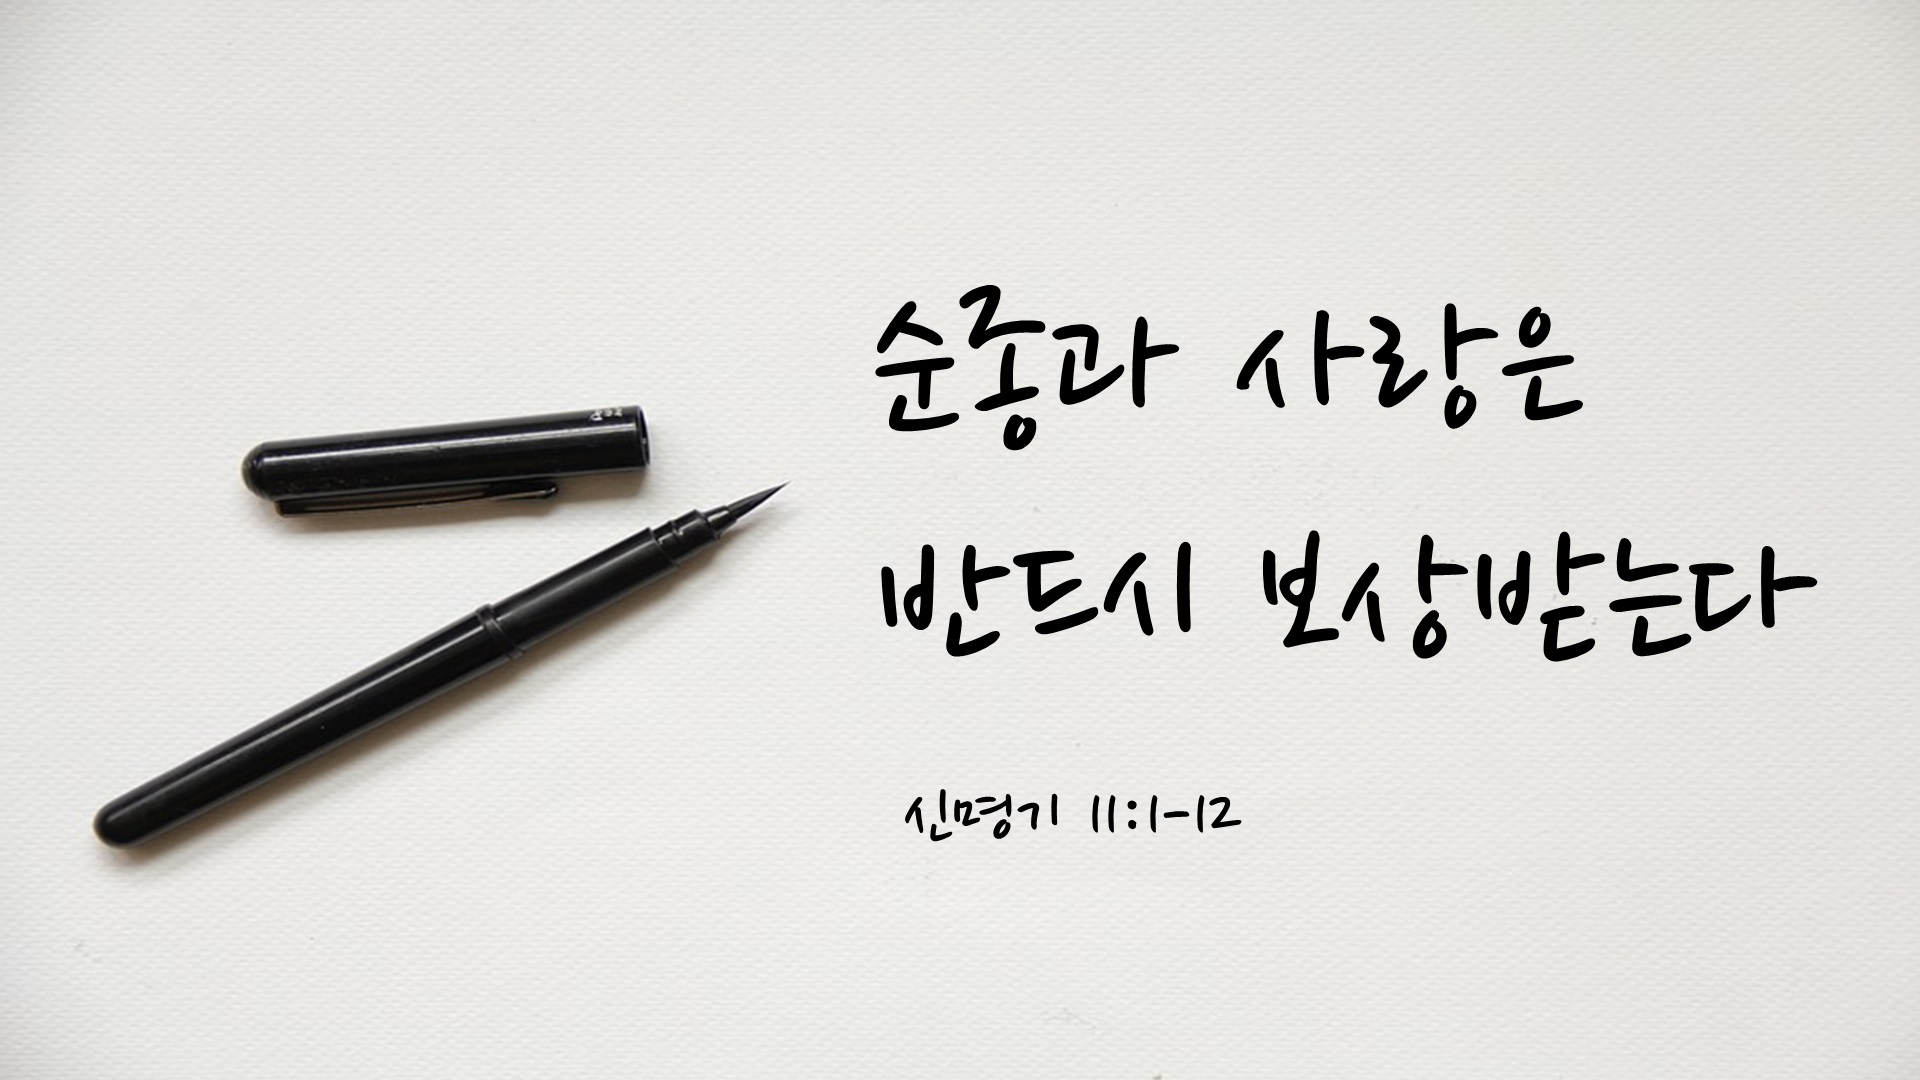 순종과 사랑은
반드시 보상받는다
신명기 11:1-12